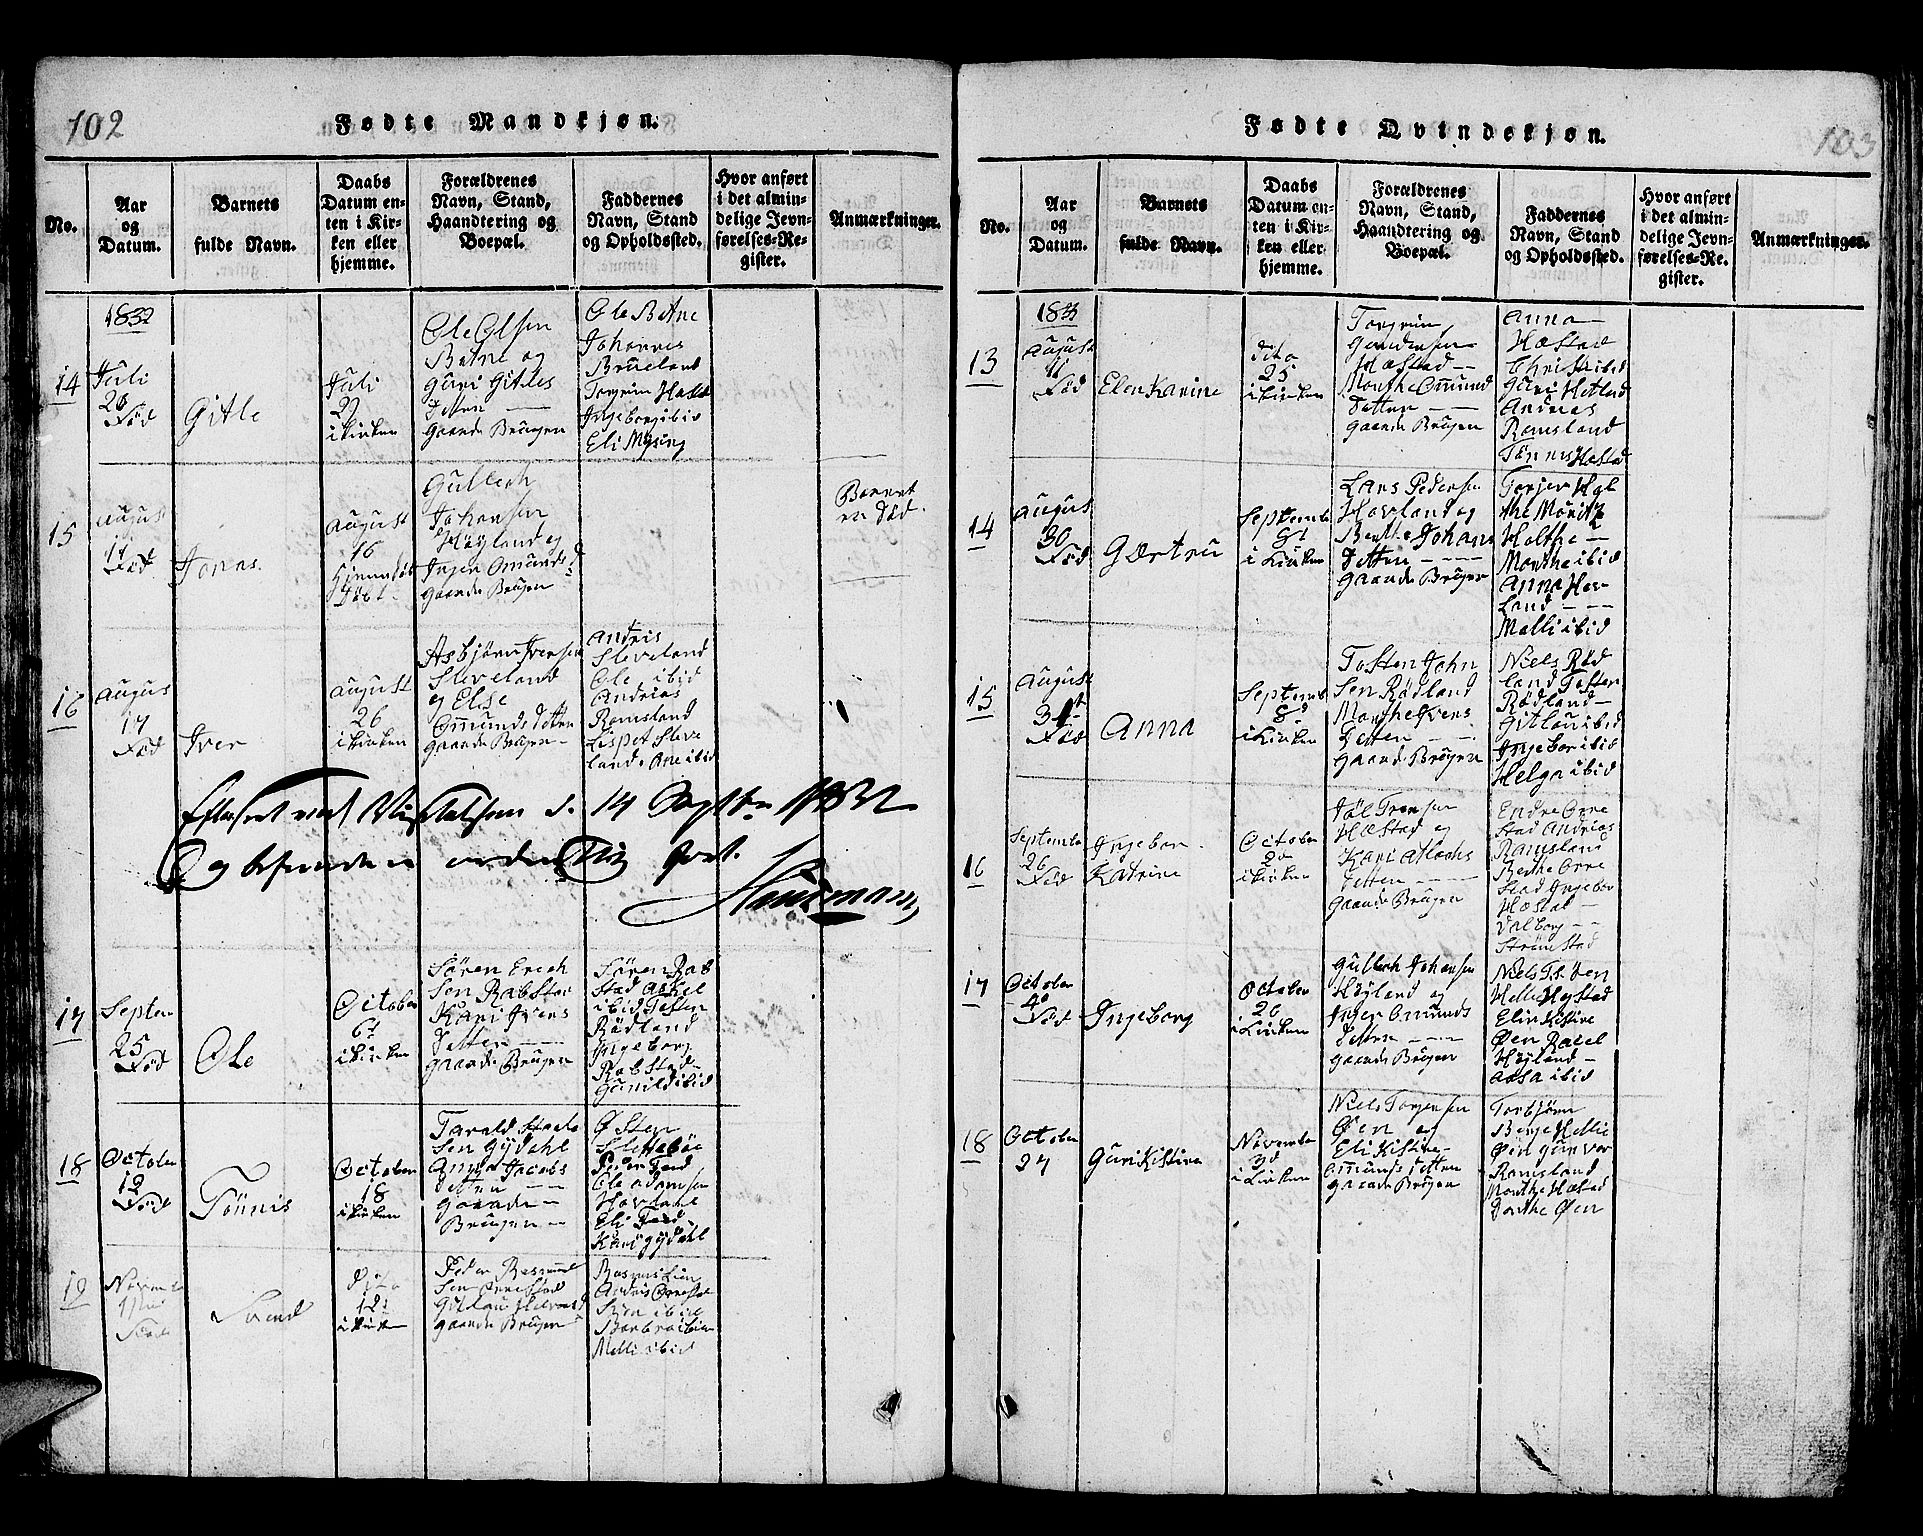 102
Fødte Mandkjøn.
No.
Aar
og
Datum.
Barnets
fulde Navn.
Daabs
Datum en-
ten i Kir-
ken eller
hjemme.
Forældrenes
Navn, Stand,
Haandtering og
Boepæl.
Faddernes
Navn, Stand
og Opholdssted.
Hvor anført
i det almin-
delige Jevn-
førelses-Re-
gister.
Anmærkninger.
1832
14
Juli
Fød
Gitle
Juli
27
i Kirken
Ole Olsen
Bitne og
Guri Gitles
Detter
Gaard Brugen
Ole Bitne
Johannes
Brueland
Torgrim Hæstad
Ingeborg ibid
Eli Mysing
15
August
Fød
Jonas
August
16
Hjemme døbt
Gullech
Johansen
Høyland og
Inger Omunds
Gaarde Brugen
Barnet
er Død.
16
August
17
Fød
Iver
August
26
i Kirken
Asbjørn Iversen
Sleveland
og Elise
Omunds detter
Gaarde Brugen
Andris
Sleveland
Ole ibid
Andrias
Ramsland
Lispet Sleve
land. Ane ibid
Efterseet ved Visitatsen d. 14 Septbr 1832
og befunden ordentlig ført.
17
Septem
25
Fød
Ole
October
6t
i Kirken
Søren Erich
Sen Rabstad
Kari Ivers
Detter
Gaarde Brugen
Søren Rab
Stad Askel
ibid Tosten
Rødland
Ingeborg
Rabstad
Gunild ibid
18
October
12
Fød
Tønnis
October
18
i Kirken
Tarald Stade
Sen Gydahl
Anna Jacobs
Detter
Gaarde
Brugen
Østen
Slettebøe
Ole Adamsen
Hovdahl
Eli
Kari Gydahl
19
Novemb
Fød
Svend
Dito
12
i Kirken
Peder Rasmus
Sen Ørrestad
Gaarde Brugen
Rasmus Lien
Andris Ørrestad
Siri ibid
Barbra ibid
Melli ibid
Fødte Qvindekjøn.
103
No.
Aar
og
Datum.
Barnets
fulde Navn.
Daabs
Datum en-
ten i Kir-
ken eller
hjemme.
Forældrenes
Navn, Stand,
Haandtering og
Boepæl.
Faddernes
Navn, Stand
og Opholdssted.
Hvor anført
i det almin-
delige Jevn-
førelses-Re-
gister.
Anmærkninger.
13
August
11
Fød
Elen Karine
Dito
25
i Kirken
Torgrim
Hæstad
Marthe Omund
Detter
Gaarde Brugen
Anna
Hæstad
Christi ibid
Guri Hetland
Andreas
Ramsland
Tønnis Hæstad
14
August
30
Fød
Gærtru
Septemb
8t
i Kirken
Lars Pedersen
Hovland og
Berthe Johans
Detter
Gaarde Brugen
Torjer Hol
the Moritz
Holthe
Marthe ibid
Anna Hov
Land
Malli ibid
15
August
31
Fød
Anna
Septemb
8
i Kirken
Tosten John
Sen Rødland
Marthe Ivers
Detter
Gaarde Brugen
Niels Rød
land Tosten
Rødland
Gitlou ibid
Ingebor ibid
Helga ibid
16
Septembr
26
Fød
Ingebor
Katrine
October
20
i Kirken
Hæstad og
Kari Atlachs
Detter
Gaarde Brugen
Endre Ørre
Stad Andrias
Ramsland
Berthe Ørre
Stad Ingebor
Hæstad
Valborg
Strømstad
17
October
4
Fød
Ingeborg
October
20
i Kirken
Gullech Johansen
Høyland og
Inger Omunds
Detter
Gaarde Brugen
Helli Hæstad
Elin Kistine
Øen Rasel
Høyland
Aasa ibid
18
October
27
Guri Kistine
Novembe
3d
i Kirken
Niels Torgersen
Øen og
Eli Kistine
Omunds Detter
Gaarde Brugen
Torbjørn
Berge Hellie
Øen Gunvor
Ramsland
Marthe Hæstad
Dorthe Øen